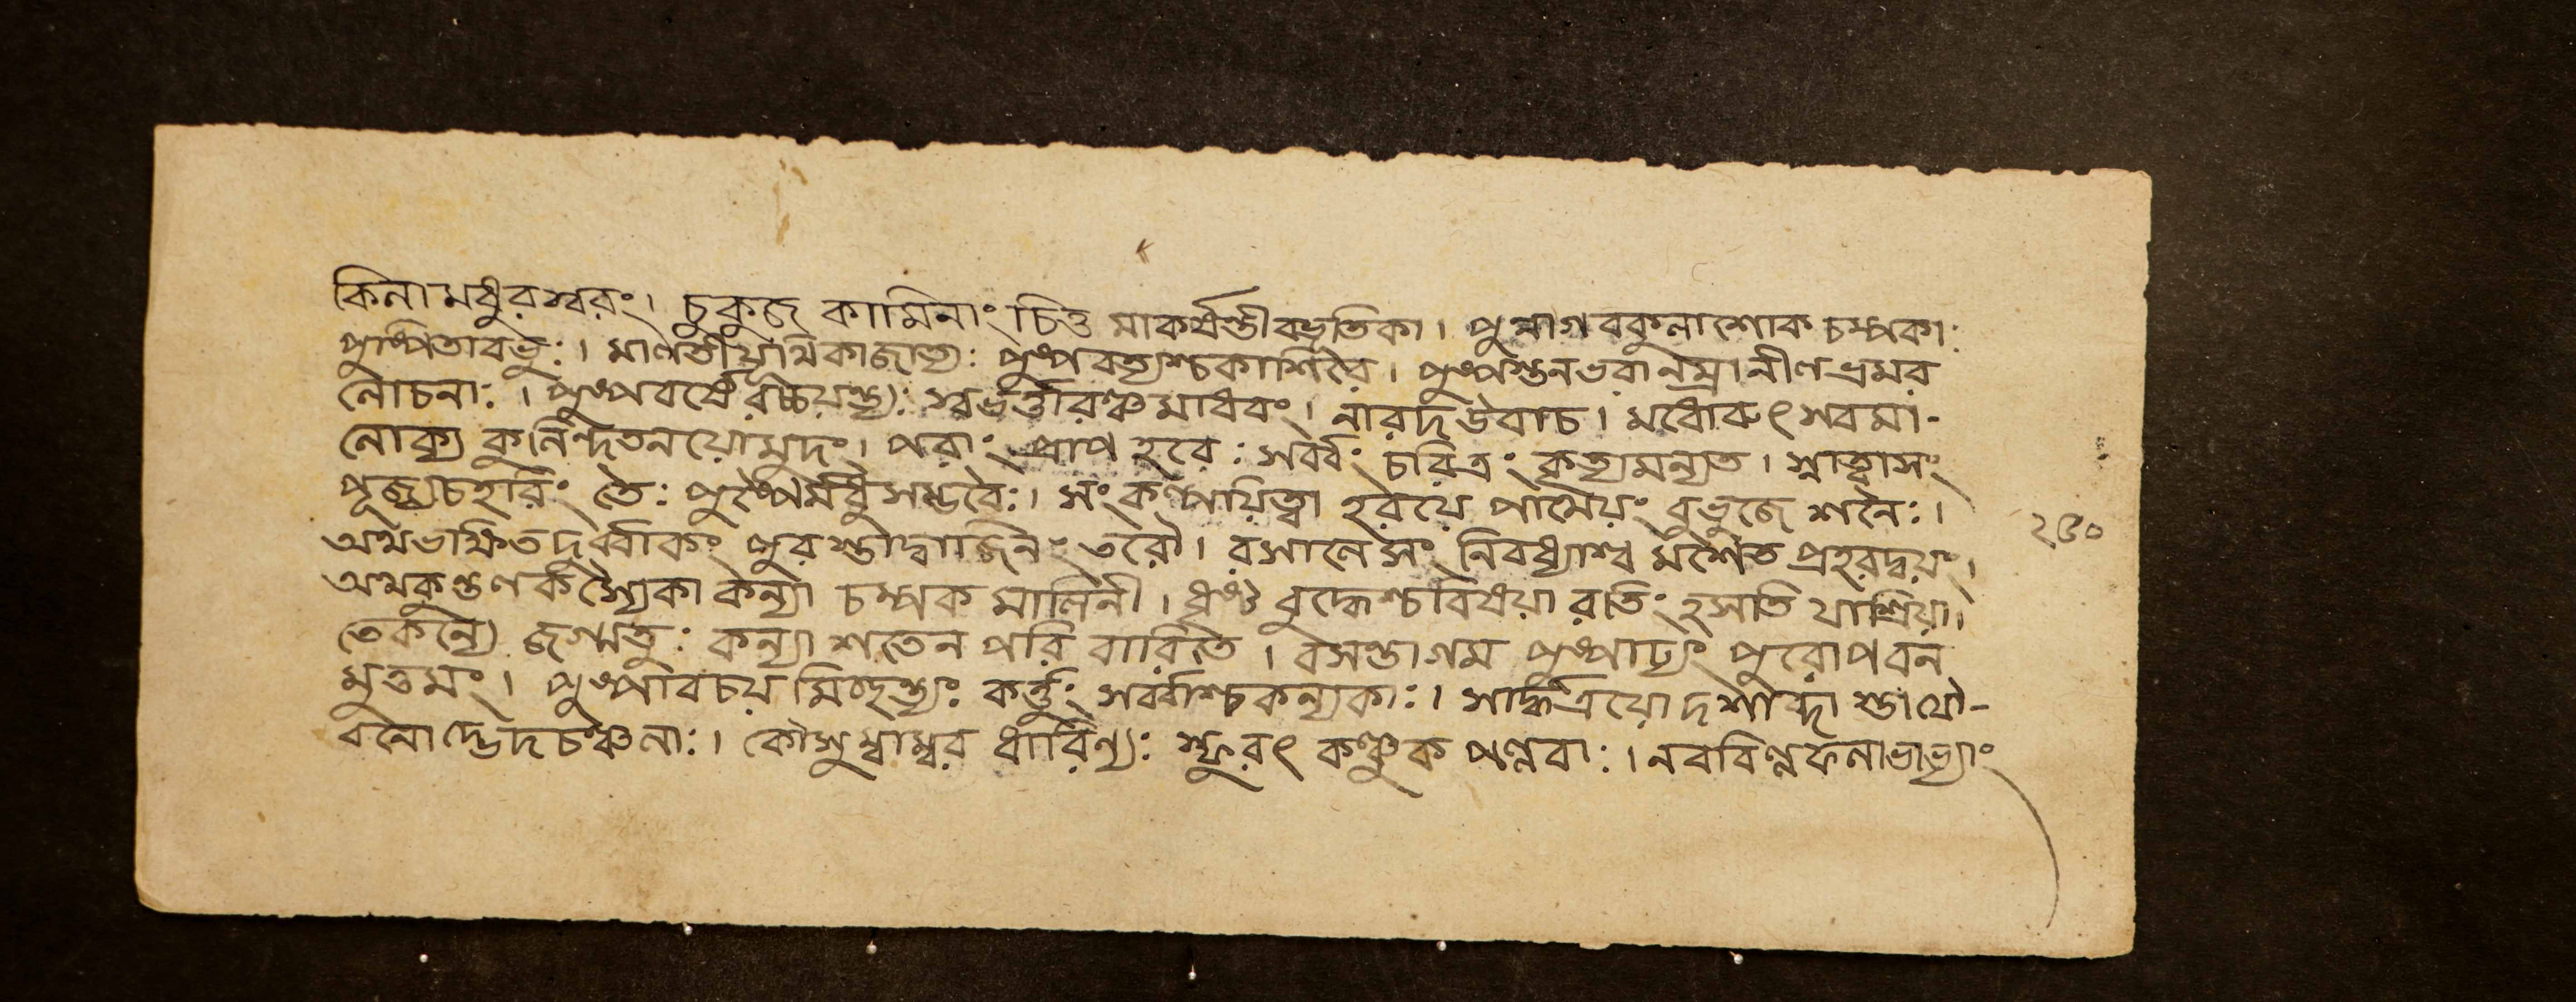 কিনামধুরস্বরং। চুকুজে কামিনাং চিত্ত মাকর্ষন্তীবভূতিকা। পুন্নাগবকুলাশোক চম্পকা
পুষ্পিতাবভুঃ। মালতীযূথিকাজাত্যঃ পুষ্পবত্যশ্চকাশিরে। পুষ্পস্তনভরানম্রানীলভ্রমর
লোচনাঃ। পুষ্পবর্ষৈ স্বভর্ত্তারঞ্চমাধবং। নারদউবাচ। মধোরুৎসবমা-
লোক্য কুলিন্দতনয়োমুদং। পরাং প্রাপ হরেঃ সর্ব্বং চরিত্রং কৃত্যমন্যত। স্নাত্বাসং
পূজ্যচহরিং তৈঃ পুষ্পৈর্মধুসম্ভবৈঃ। সংকল্পয়িত্বা হরয়ে পাথেয়ং বুভুজে শনৈঃ।
অথভক্ষিতদূর্ব্বাকং পুরস্তাদ্বাজিনং তরৌ। রসালেসং নিবধ্যাশ্ব মশেত প্রহরদ্বয়ং।
অথকুন্তলকস্যৈকা কন্যা চম্পক মালিনী। ধৃষ্ট বুদ্ধেশ্চবিষয়া রতিং হসতি যাশ্রিয়া।
তেকন্যে জগ্মতুঃ কন্যা শতেন পরি বারিতে। বসন্তাগম পুষ্পাঢ্যং পুরোপবন
মুত্তমং। পুষ্পাবচয় মিচ্ছন্ত্যঃ কর্ত্তুং সর্ব্বাশ্চকন্যকাঃ। সার্দ্ধত্রয়োদশাব্দা স্তাযৌ-
বনোদ্ভেদচঞ্চলাঃ। কৌসুম্বাম্বর ধারিণ্যঃ স্ফুরৎ কঞ্চুক পল্লবাঃ। নববিল্বফলাভাভ্যাং
২৫০